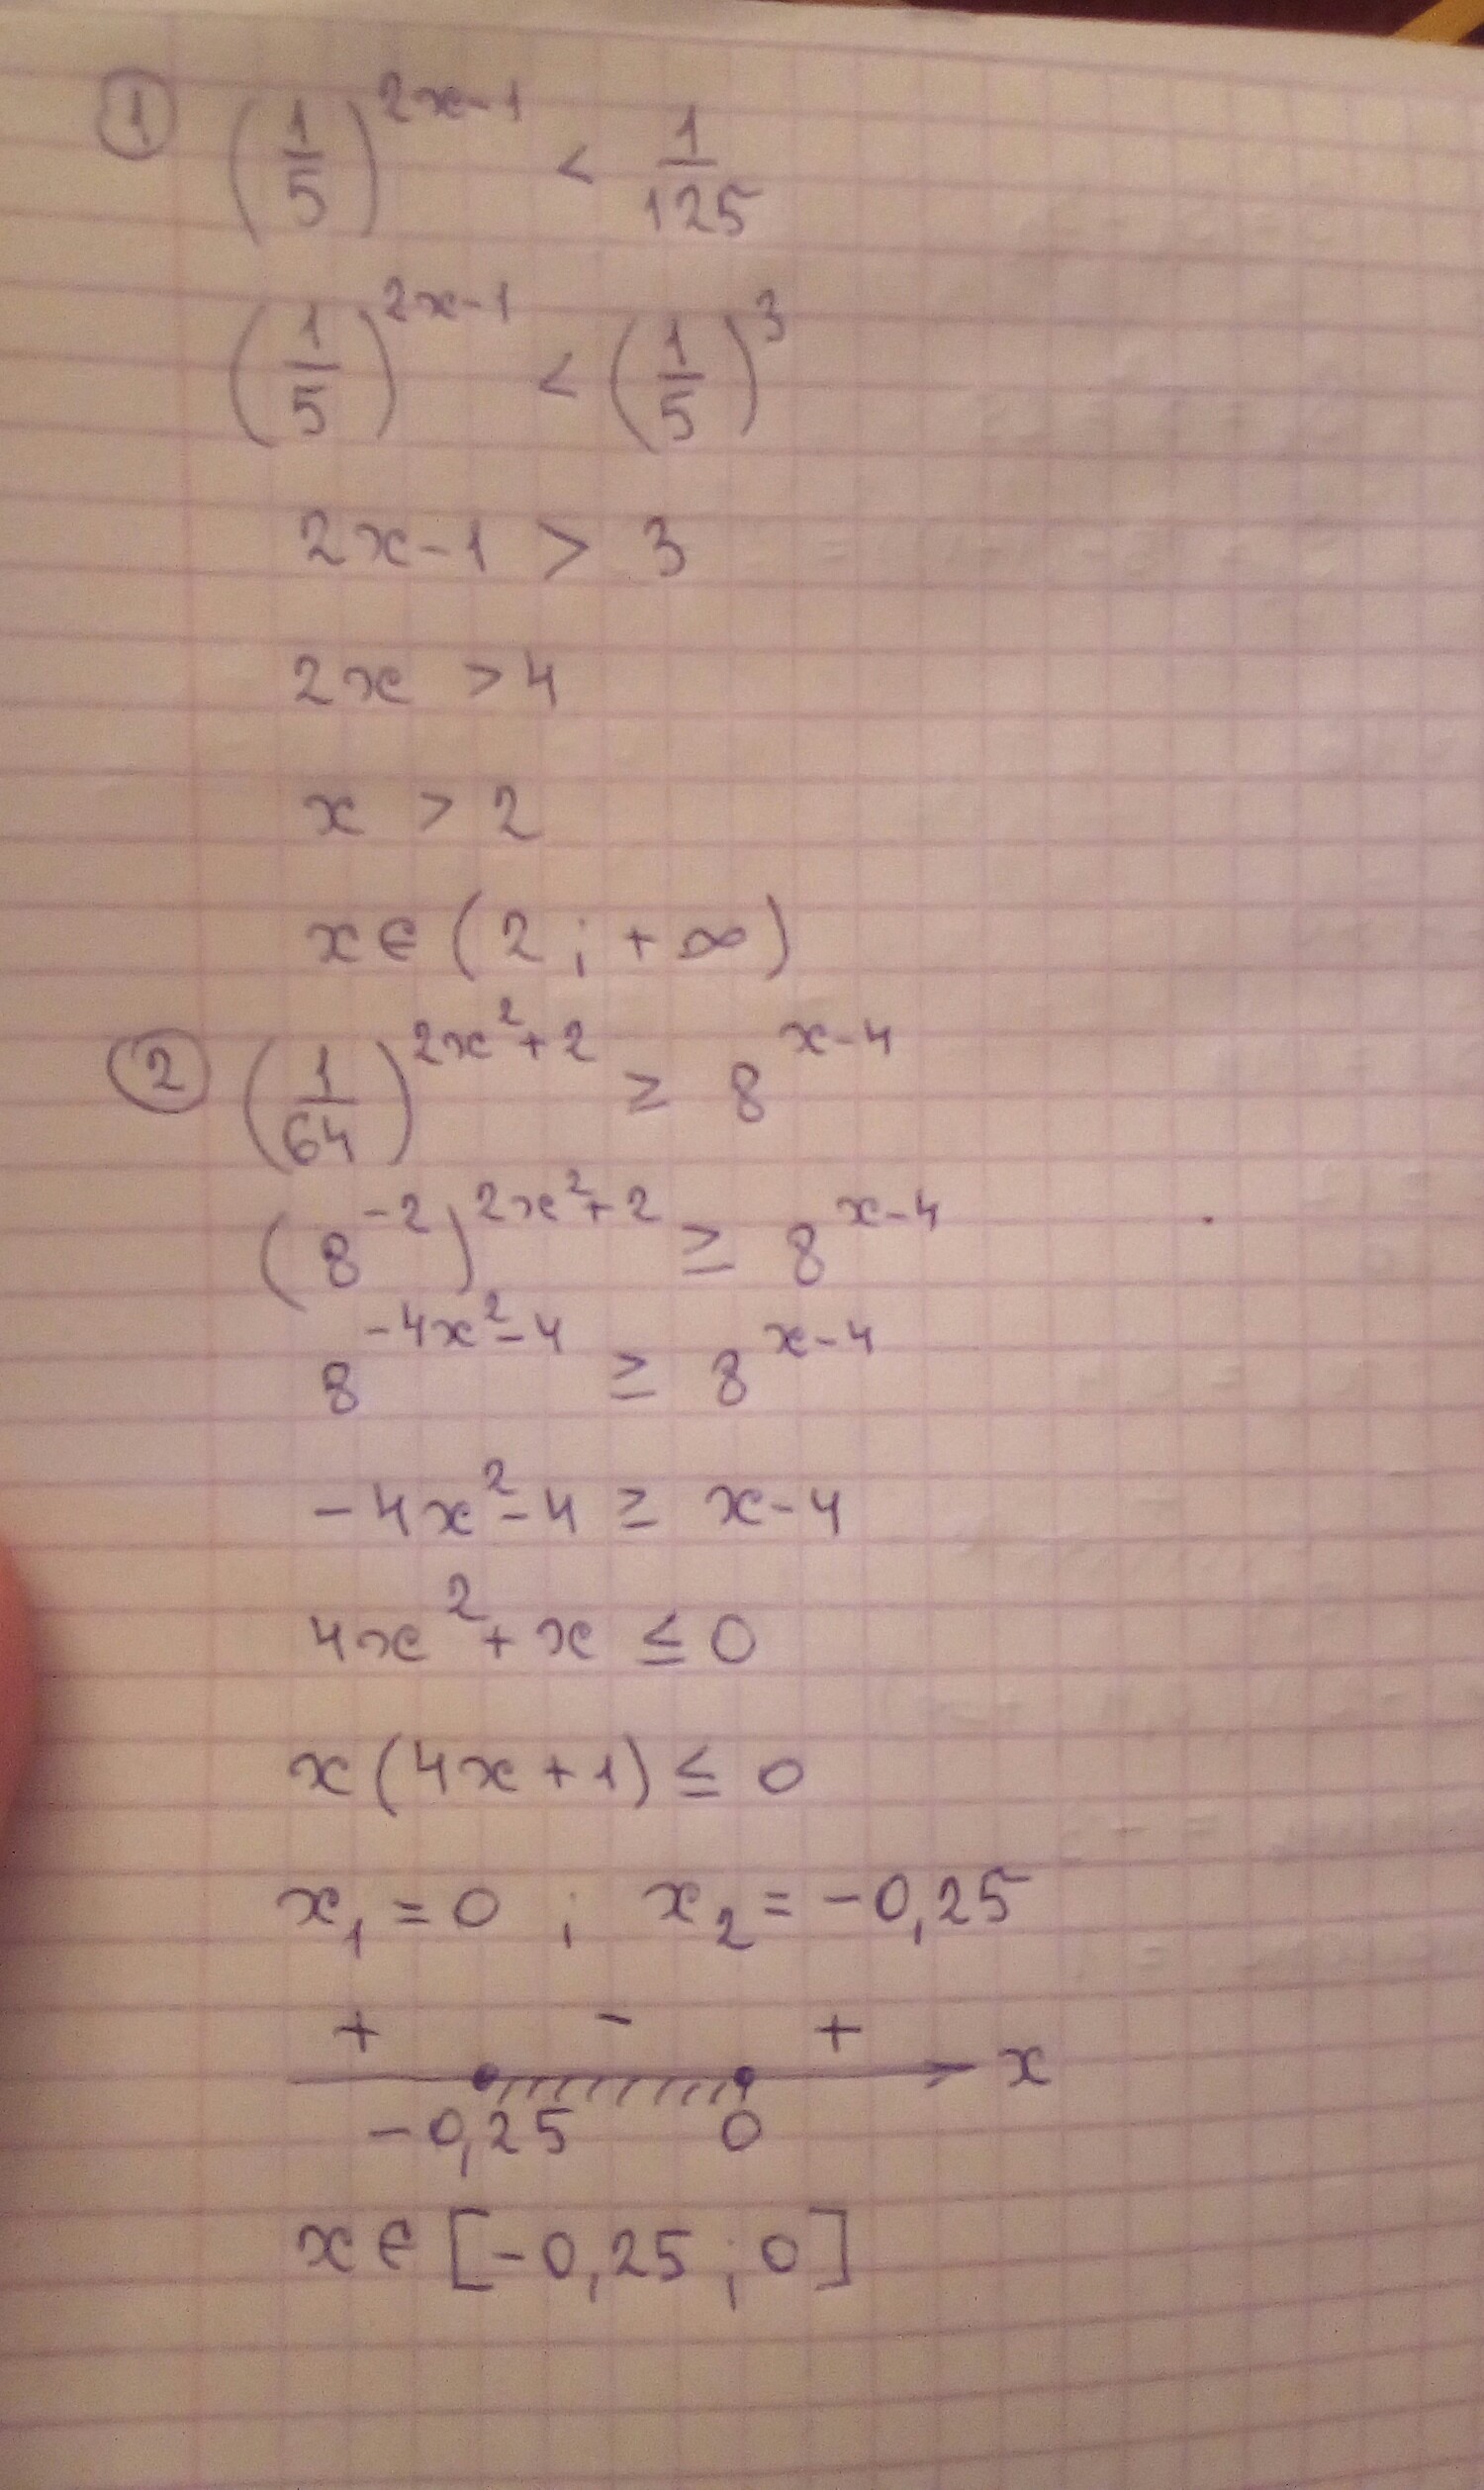 ① (1/5)^(2x-1) < 1/125
(1/5)^(2x-1) < (1/5)^3
2x-1 > 3
2x > 4
x > 2
x ∈ (2; +∞)
② (1/64)^(2x²+2) ≥ 8^(x-4)
(8^(-2))^(2x²+2) ≥ 8^(x-4)
8^(-4x²-4) ≥ 8^(x-4)
-4x²-4 ≥ x-4
4x²+x ≤ 0
x(4x+1) ≤ 0
x₁=0 ; x₂=-0,25
+ - +
x
-0,25 0
x ∈ [-0,25; 0]